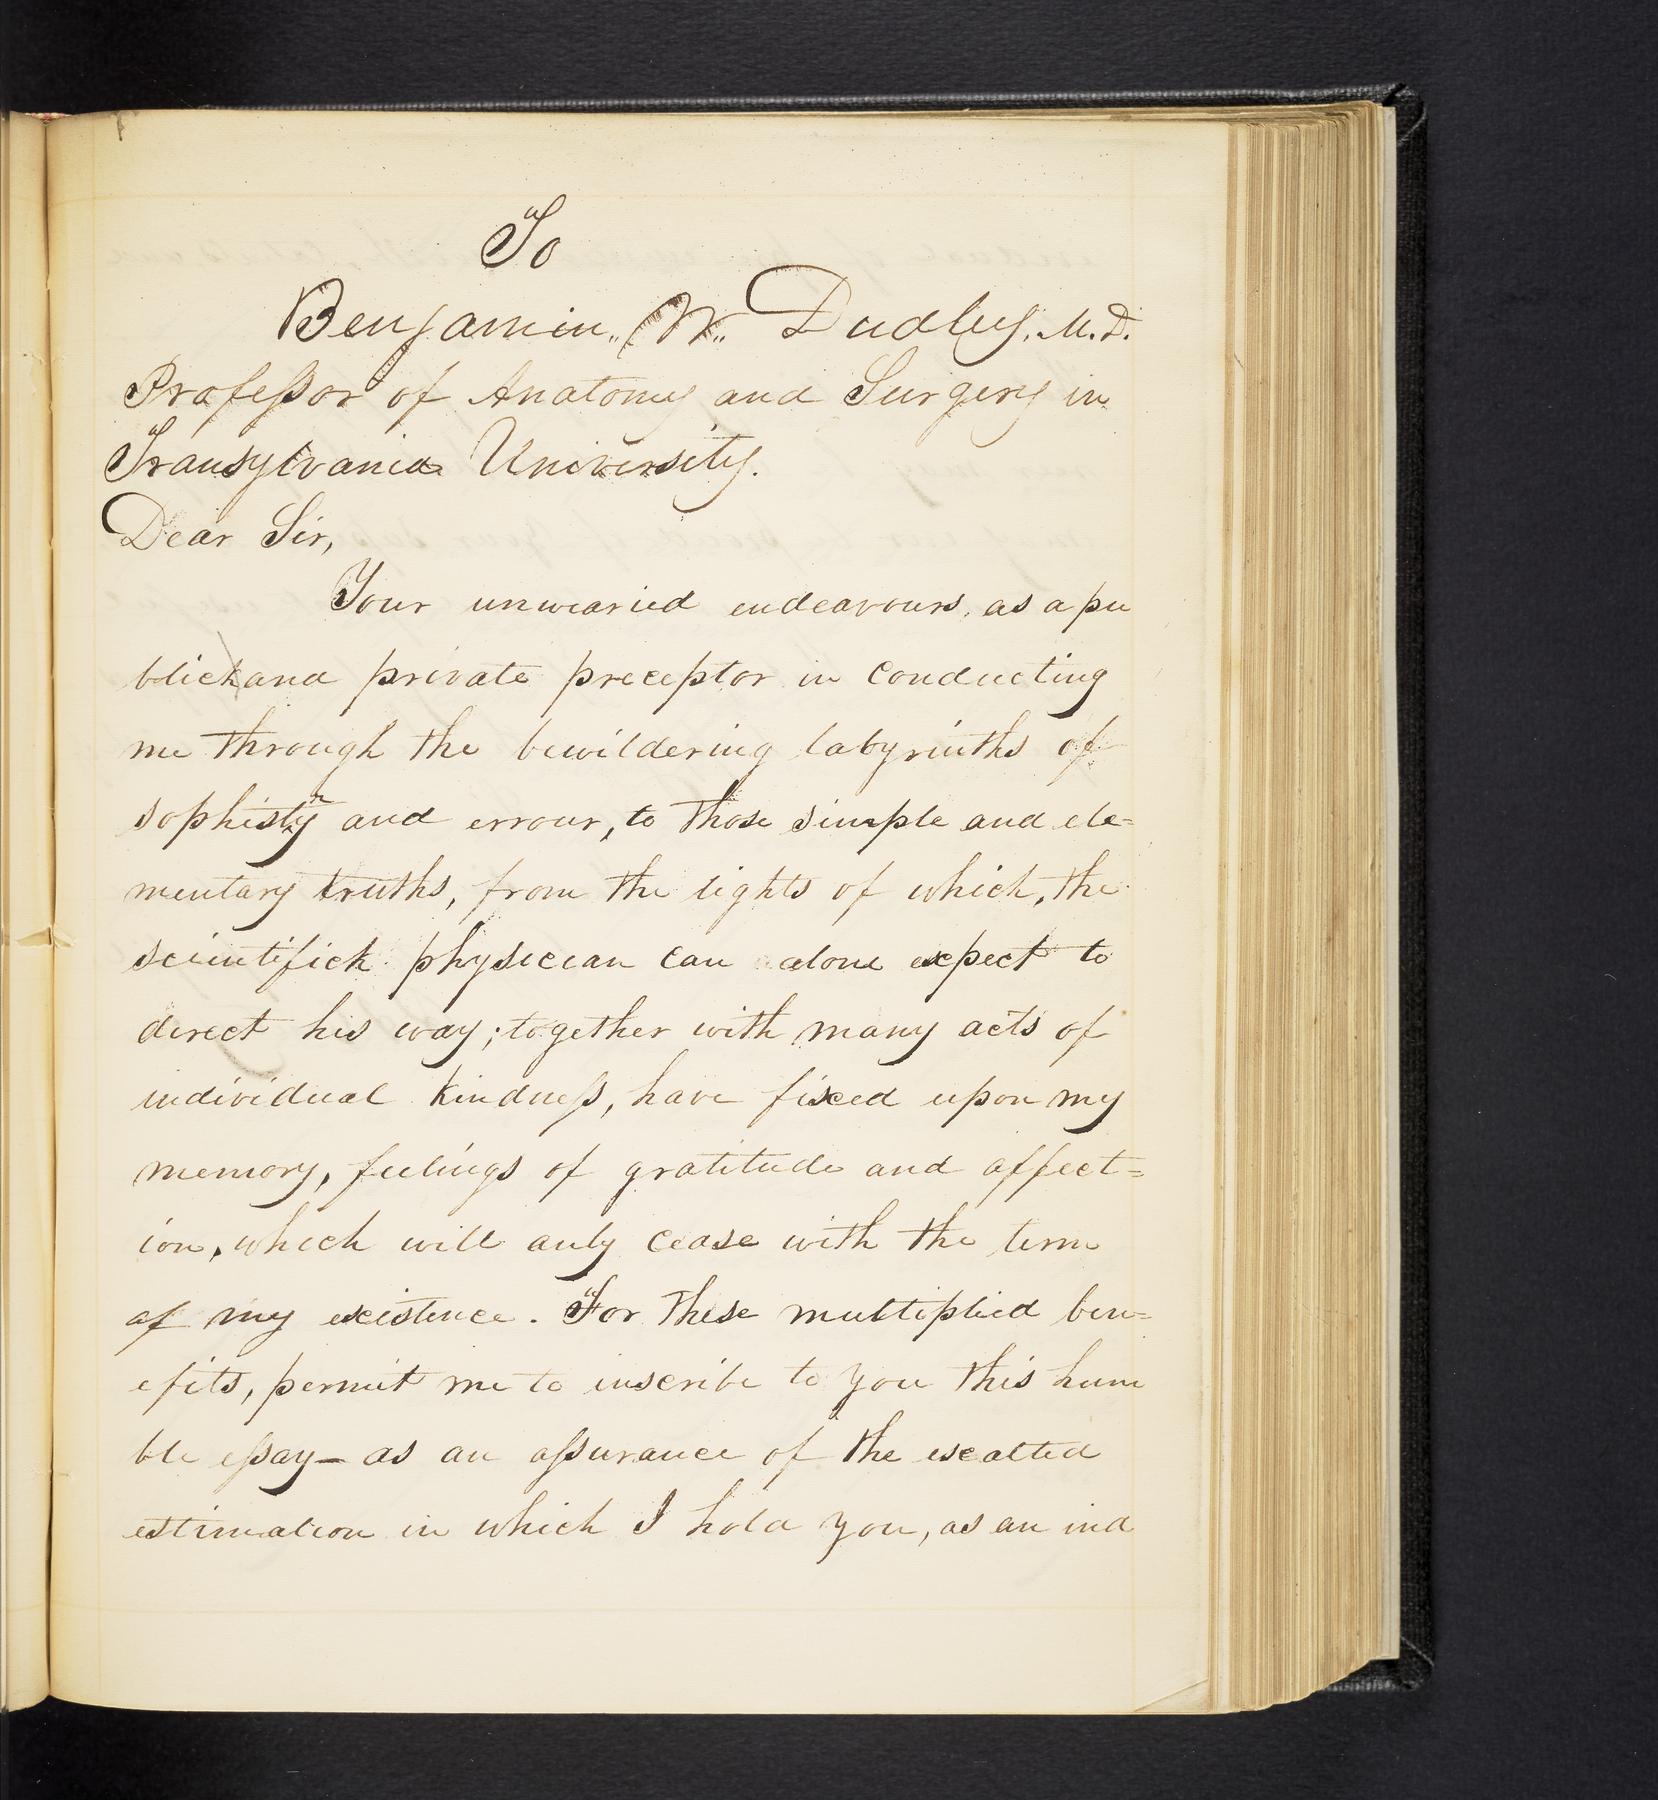 To
Benjamin, W. Dudley, M.D.
Professor of Anatomy and Surgery in
Transylvania University.
Dear Sir,
Your unwearied endeavours, as a pu
blick and private preceptor in conducting
me through the bewildering labyrinths of
sophistry and errour, to those simple and ele=
mentary truths, from the lights of which, the
scientifick physician can alone expect to
direct his way; together with many acts of
individual kindness, have fixed upon my
memory, feelings of gratitude and affect=
ion, which will only cease with the term
of my existence. For these multiplied ben=
efits, permit me to inscribe to you this hum
ble essay — as an assurance of the exalted
estimation in which I hold you, as an ind